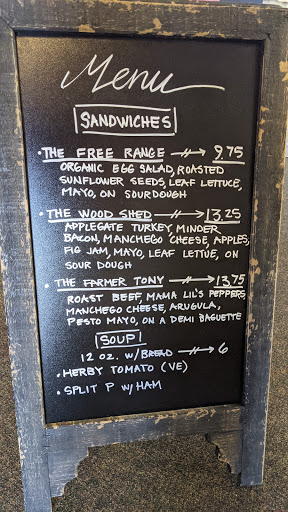 Menu
SANDWICHES
• THE FREE RANGE → 9.75
ORGANIC EGG SALAD, ROASTED
SUNFLOWER SEEDS, LEAF LETTUCE,
MAYO, ON SOURDOUGH
• THE WOOD SHED → 13.25
APPLEGATE TURKEY, MINDER
BACON, MANCHEGO CHEESE, APPLES,
FIG JAM, MAYO, LEAF LETTUE, ON
SOUR DOUGH
• THE FARMER TONY → 13.75
ROAST BEEF, MAMA LIL'S PEPPERS,
MANCHEGO CHEESE, ARUGULA,
PESTO MAYO, ON A DEMI BAGUETTE
SOUP
12 OZ. W/ BREAD → 6
• HERBY TOMATO (VE)
• SPLIT P W/ HAM